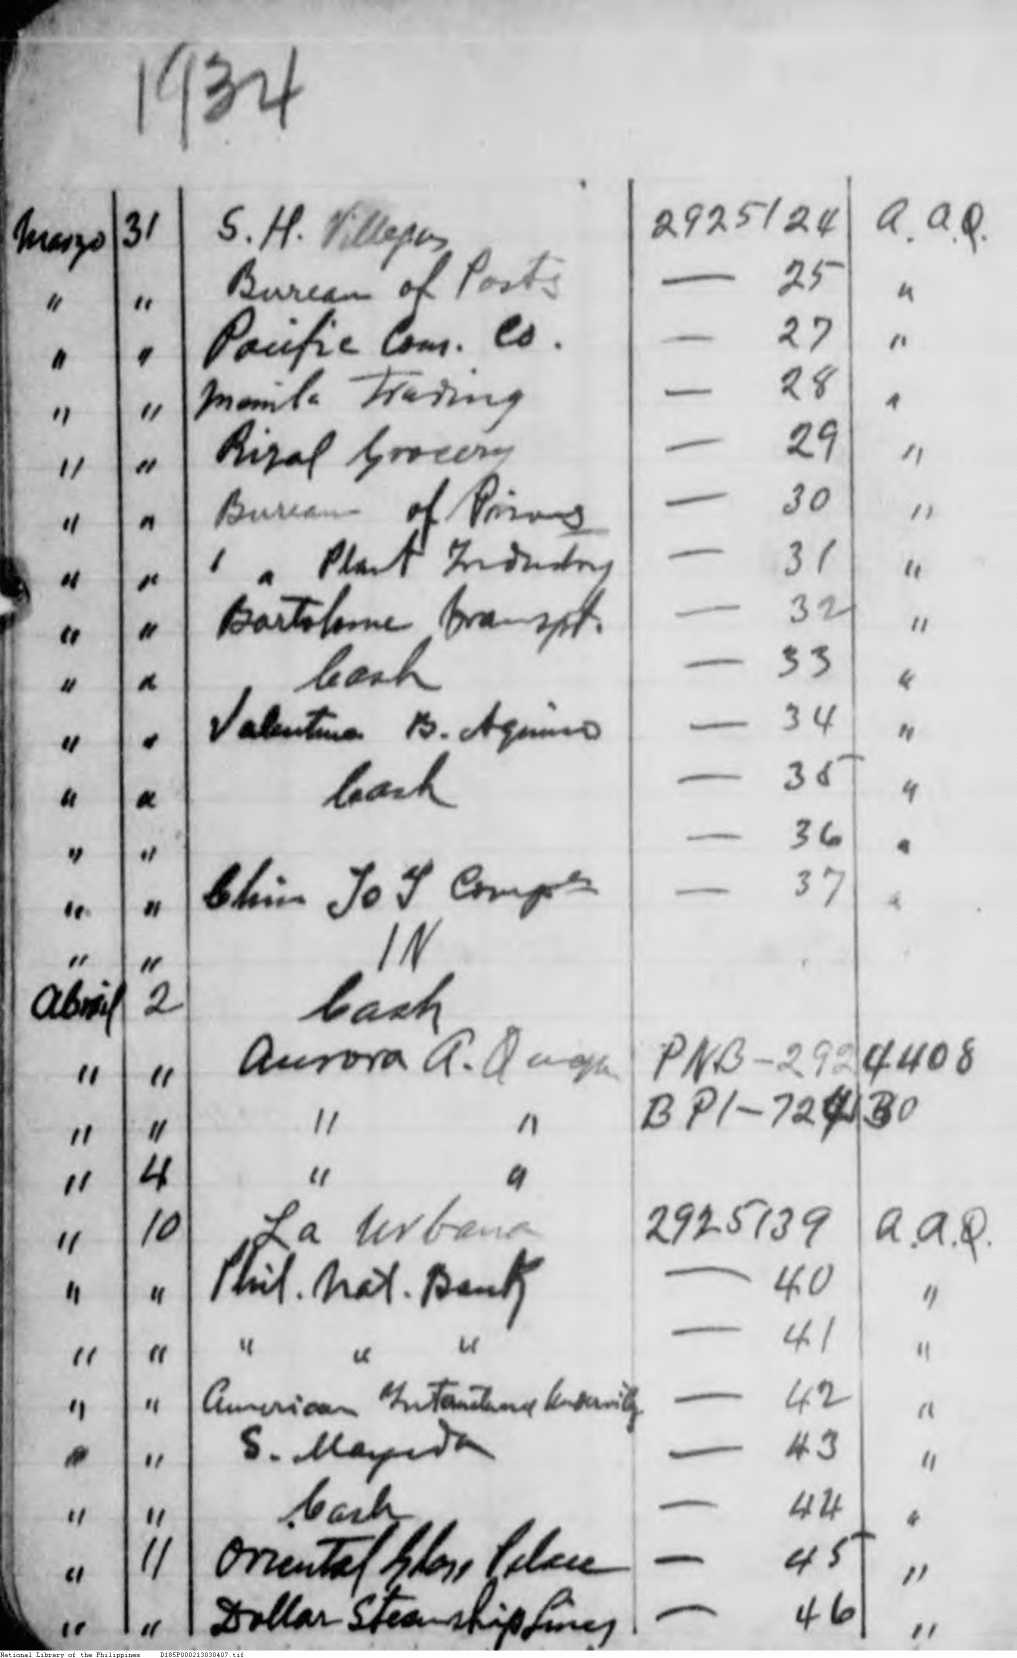 1934
Marzo 31 S. H. Villegas 2925124 A. A. Q.
" " Bureau of Posts — 25 "
" " Pacific Com. Co. — 27 "
" " Manila Trading — 28 "
" " Rizal Grocery — 29 "
" " Bureau of Prisons — 30 "
" " " " Plant Industry — 31 "
" " Bartolome Transpt. — 32 "
" " Cash — 33 "
" " Valentina B. Aquino — 34 "
" " Cash — 35 "
" " — 36 "
" " Chin To — 37 "
" " IN
Abril 2 Cash
" " Aurora A. PNB-2924408
" " " " BPI-72
" 4 " "
" 10 La Urbana 2925139 A. A. Q.
" " Phil. Nat. Bank — 40 "
" " " " " — 41 "
" " American — 42 "
" " S. Mayeda — 43 "
" " Cash — 44 "
" 11 Oriental Glass Palace — 45 "
" " Dollar Steamship Lines — 46 "
National Library of the Philippines D185P000213030407.tif